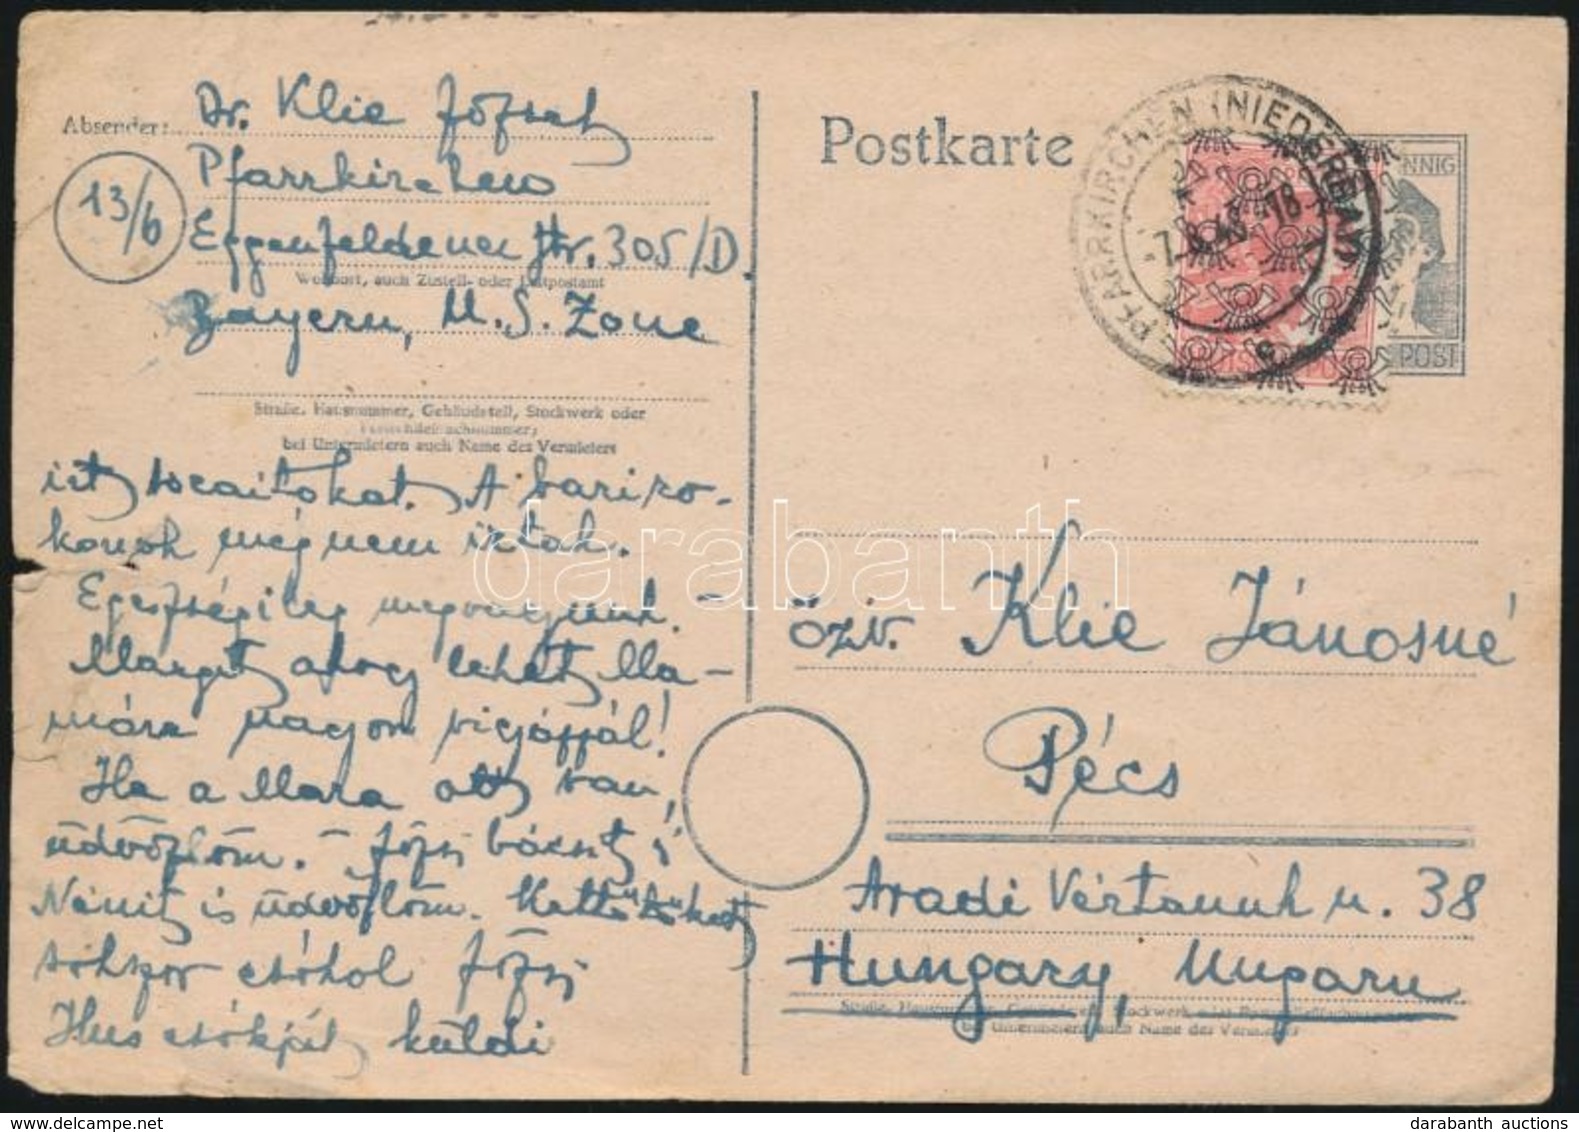 Absender:
Dr. Klie József
Pfarrkirchen
13/b
Eggenfeldener Str. 305/D.
Wohnort, auch Zustell- oder Leitpostamt
Bayern, U.S. Zone
Straße, Hausnummer, Gebäudeteil, Stockwerk oder
bei Untermietern auch Name des Vermieters
A bari ro-
konok még nem írtak.
Egészségileg megvagyunk. –
Margit ahogy lehet Ma-
mára nagyon vigyázzál!
Ha a Mara ott van,
üdvözlöm. – Józsi bácsit,
Nénit is üdvözlöm. Kettőtöket
sokszor csókol Józsi
Ilus csókját küldi
Postkarte
PFARRKIRCHEN (NIEDERBAY)
-7.8.48.-18
PFENNIG
POST
özv. Klie Jánosné
Pécs
Aradi Vértanuk u. 38
Hungary, Ungarn
bei Untermietern auch Name des Vermieters
darabanth
darabanth auctions
www.delcampe.net